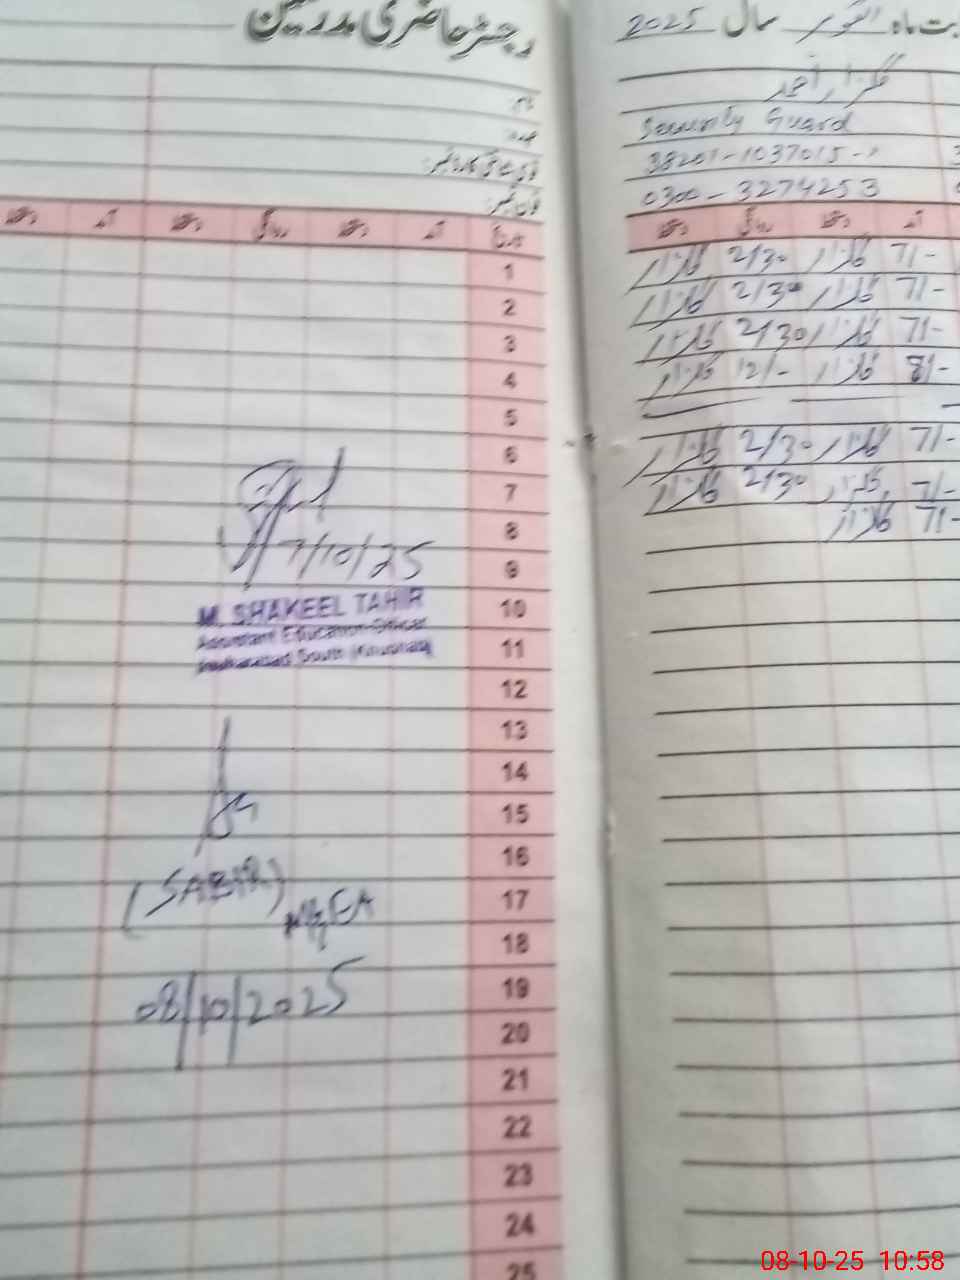 رجسٹر حاضری مدرسین
نام:
عہدہ:
قومی شناختی کارڈ نمبر:
فون نمبر:
دستخط آمد دستخط روانگی دستخط آمد تاریخ
1
2
3
4
5
6
7
8
9
10
11
12
13
14
15
16
17
18
19
20
21
22
23
24
25
7/10/25
M. SHAKEEL TAHIR
Assistant Education Officer
South
(SABIR)
MEA
08/10/2025
بت ماہ اکتوبر سال 2025
گلزار احمد
Security Guard
38201-1037015-
0300-3274253
آمد دستخط روانگی دستخط
7/- گلزار 2/30 گلزار
7/- گلزار 2/30 گلزار
7/- گلزار 2/30 گلزار
8/- گلزار 12/- گلزار
7/- گلزار 2/30 گلزار
7/- گلزار 2/30 گلزار
7/- گلزار
08-10-25 10:58